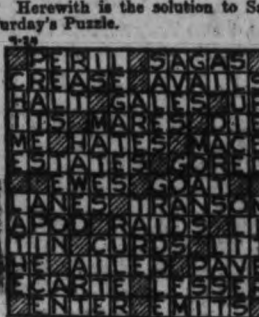 Herewith is the solution to Sa
urday's Puzzle.
9-29
PERIL SAGAS
CREASE AVAILS
HALT GALES UP
ITS MARES DIE
ME HATES MACE
ESTATES GORED
EWES GOAT
LANES TRANSOM
APOD RAIDS LI
TIN CURDS LI
HE AILED PAVE
ECARTE LESSEE
ENTER EMITS